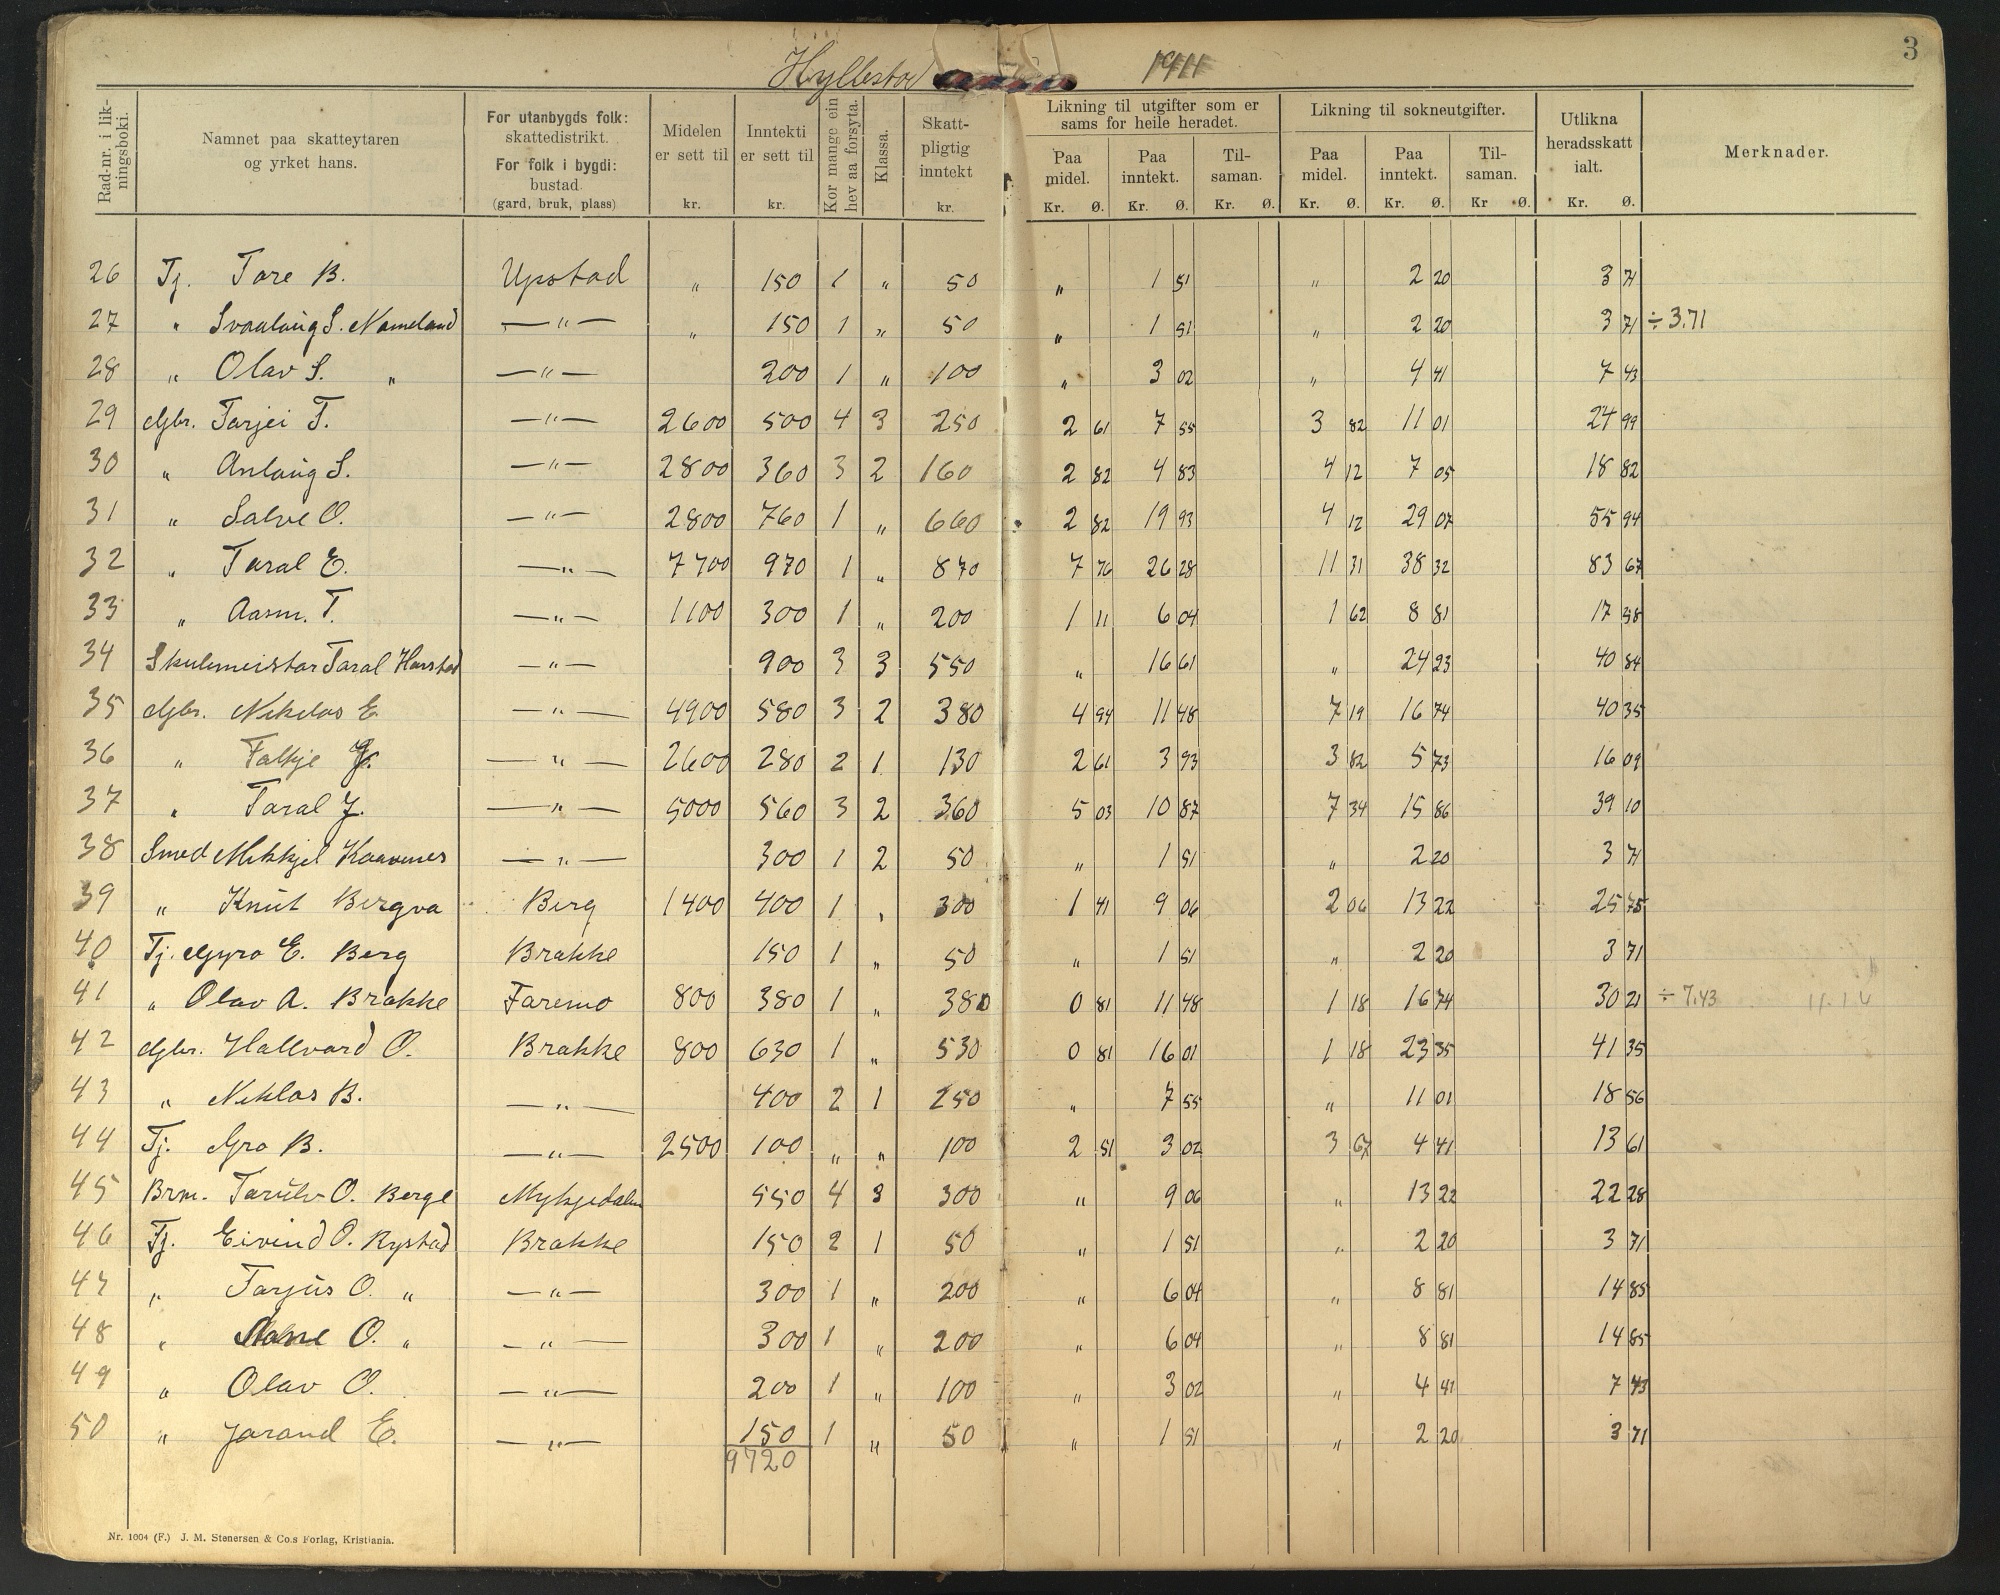 Hyllestad 1911 3
Rad-nr. i lik-
ningsboki.
Namnet paa skatteytaren
og yrket hans.
For utanbygds folk:
skattedistrikt.
For folk i bygdi:
bustad.
(gard, bruk, plass)
Midelen
er sett til
kr.
Inntekti
er sett til
kr.
Kor mange ein
hev aa forsyta.
Klassa.
Skatt-
pligtig
inntekt
kr.
Likning til utgifter som er
sams for heile heradet.
Paa
midel.
Kr. Ø.
Paa
inntekt.
Kr. Ø.
Til-
saman.
Kr. Ø.
Likning til sokneutgifter.
Paa
midel.
Kr. Ø.
Paa
inntekt.
Kr. Ø.
Til-
saman.
Kr Ø.
Utlikna
heradsskatt
ialt.
Kr. Ø.
Merknader.
26 Tj. Tore B. Upstad " 150 1 " 50 " 1 51 " 2 20 3 71
27 " Svaalaug S. Nomeland — " — " 150 1 " 50 " 1 51 " 2 20 3 71 ÷ 3.71
28 " Olav S. " — " — 200 1 " 100 " 3 02 " 4 41 7 43
29 Gbr. Tarjei T. — " — 2600 500 4 3 250 2 61 7 55 3 82 11 01 24 99
30 " Anlaug S. — " — 2800 360 3 2 160 2 82 4 83 4 12 7 05 18 82
31 " Salve O. — " — 2800 760 1 " 660 2 82 19 93 4 12 29 07 55 94
32 " Taral E. — " — 7700 970 1 " 870 7 76 26 28 11 31 38 32 83 67
33 " Aasm. T. — " — 1100 300 1 " 200 1 11 6 04 1 62 8 81 17 58
34 Skulemeistar Taral Harstad — " — 900 3 3 550 " 16 61 " 24 23 40 84
35 Gbr. Nikolas E. — " — 4900 580 3 2 380 4 94 11 48 7 19 16 74 40 35
36 " Falkje — " — 2600 280 2 1 130 2 61 3 93 3 82 5 73 16 09
37 " Taral J. — " — 5000 560 3 2 360 5 03 10 87 7 34 15 86 39 10
38 Smed Mikkjel Kaavenes — " — 300 1 2 50 " 1 51 " 2 20 3 71
39 " Knut Bergva Berg 1400 400 1 " 300 1 41 9 06 2 06 13 22 25 75
40 Tj. Gyro E. Berg Brokke 150 1 " 50 " 1 51 " 2 20 3 71
41 " Olav A. Brokke Faremo 800 380 1 " 380 0 81 11 48 1 18 16 74 30 21 ÷ 7.43
42 Gbr. Hallvard O. Brokke 800 630 1 " 530 0 81 16 01 1 18 23 35 41 35
43 " Niklos B. — " — 400 2 1 250 " 7 55 " 11 01 18 56
44 Tj. Gro B. — " — 2500 100 " " 100 2 51 3 02 3 67 4 41 13 61
45 Brm. Tarulv O. Berge Mykjedalen 550 4 3 300 " 9 06 " 13 22 22 28
46 Tj. Eivind O. Rystad Brokke 150 2 1 50 " 1 51 " 2 20 3 71
47 " Tarjus O. " — " — 300 1 " 200 " 6 04 " 8 81 14 85
48 " O. " — " — 300 1 " 200 " 6 04 " 8 81 14 85
49 " Olav O. — " — 200 1 " 100 " 3 02 " 4 41 7 43
50 " Jorand E. — " — 150 1 " 50 " 1 51 " 2 20 3 71
9720
Nr. 1004 (F.) J. M. Stenersen & Co.s Forlag, Kristiania.